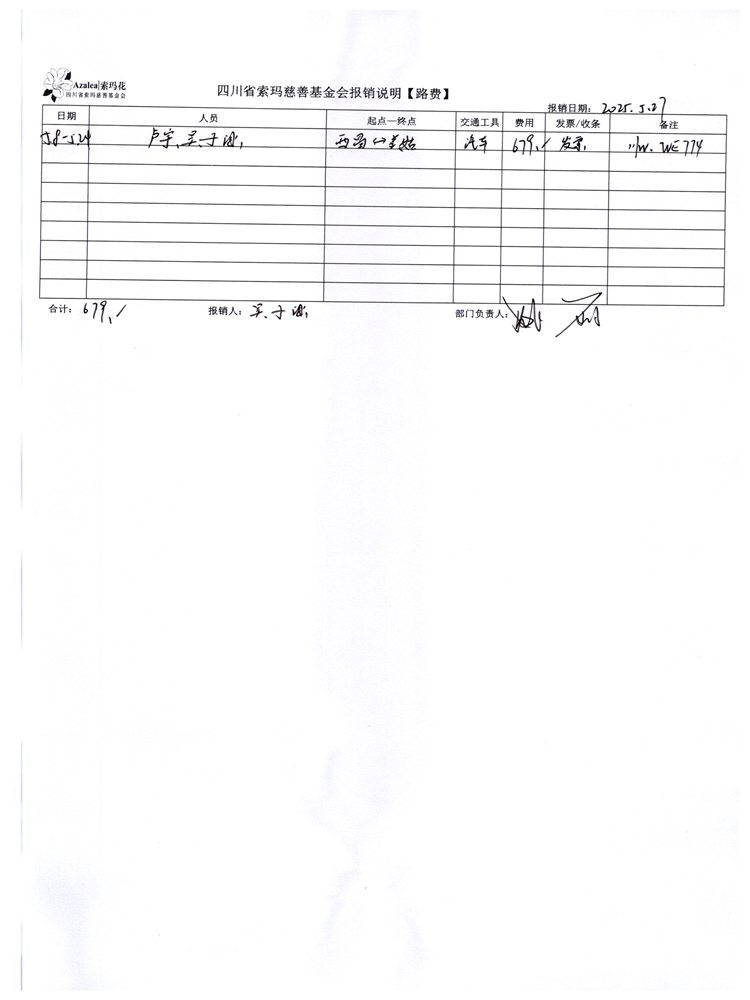 Azalea|索玛花
四川省索玛慈善基金会
四川省索玛慈善基金会报销说明【路费】
报销日期: 2025.5.27
日期 人员 起点—终点 交通工具 费用 发票/收条 备注
5.8-5.24 卢宇、吴于 西昌 美姑 汽车 679 发票 WE774
合计: 679 报销人: 吴于 部门负责人: